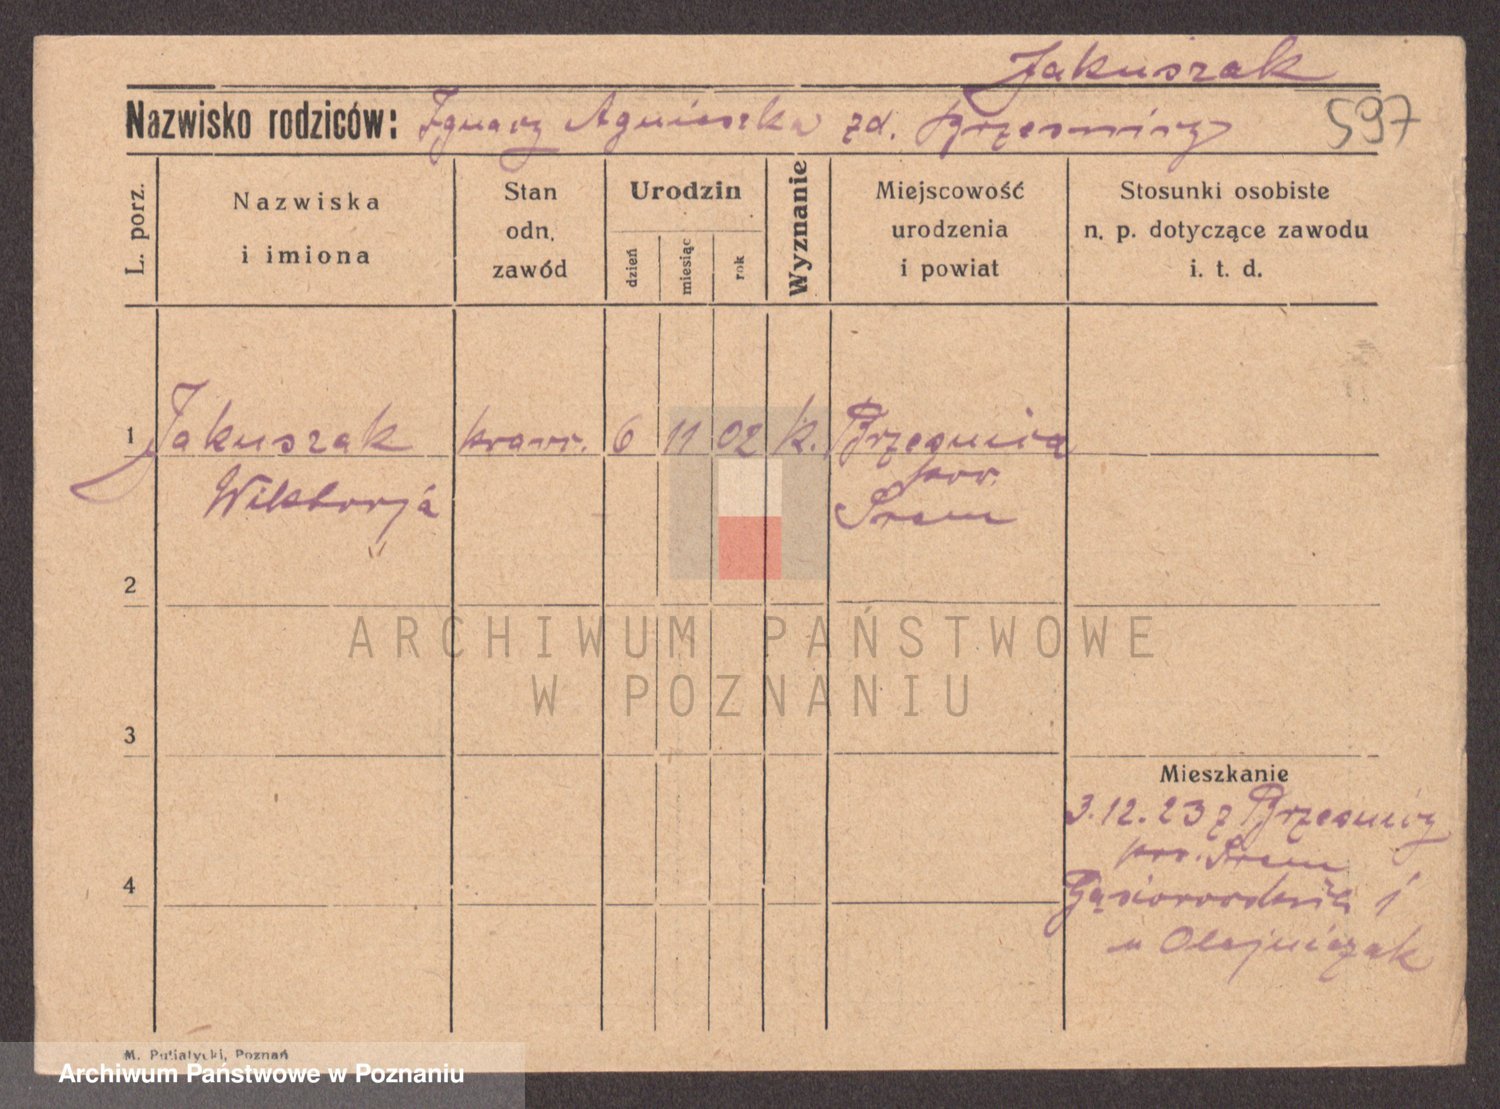 Jakuszak
Nazwisko rodziców: Ignacy Agnieszka zd.
597
L. porz.
Nazwiska
i imiona
Stan
odn.
zawód
Urodzin
dzień
miesiąc
rok
Wyznanie
Miejscowość
urodzenia
i powiat
Stosunki osobiste
n. p. dotyczące zawodu
i. t. d.
1 Jakuszak kraw. 6 11 02 k. Brzesnica
Wiktorja
pow.
Śrem
2
3
4
Mieszkanie
3.12.23 z Brzesnicy
pow. Śrem
1
u Olejniczak
ARCHIWUM PAŃSTWOWE
W POZNANIU
M. Putiatycki, Poznań
Archiwum Państwowe w Poznaniu